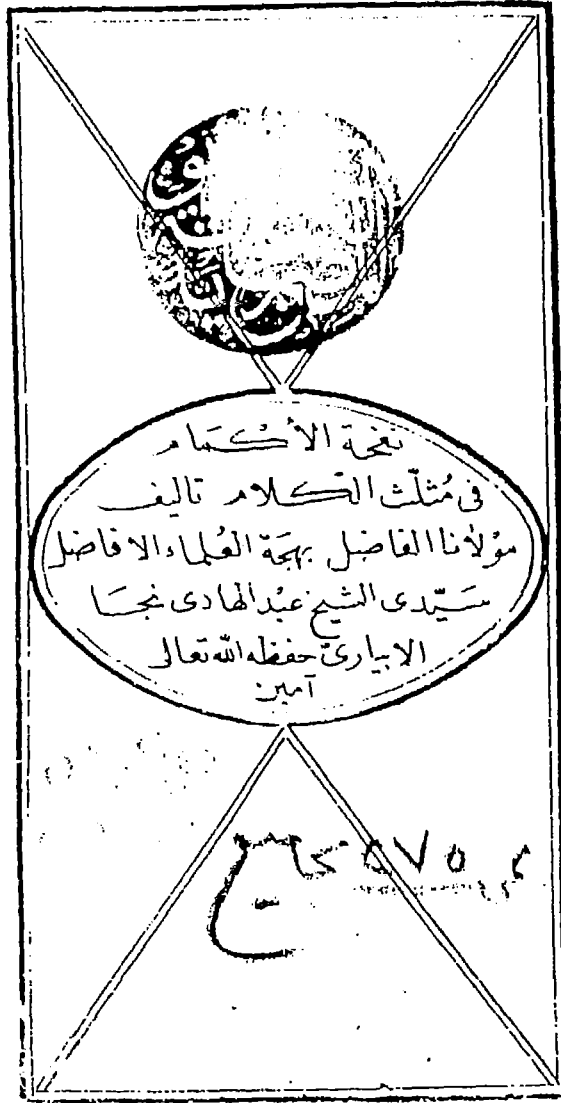 نفحة الأكمام
فى مُثلّث الكلام تاليف
مولانا الفاضل بهجة العُلماء الافاضل
سَيّدى الشيخ عبْد الهادى نجَا
الابيارىّ حفظه الله تعالى
آمين
٥٧٥